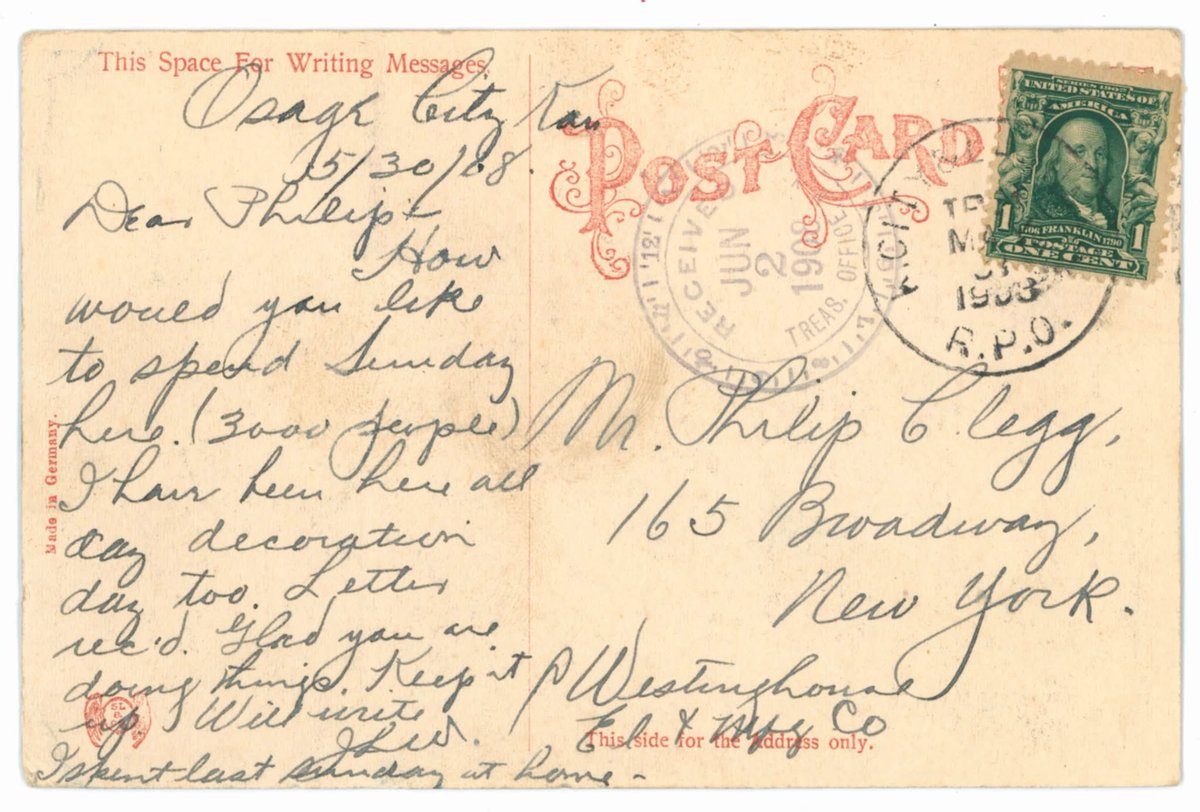 This Space For Writing Messages.
Osage City Kan
5/30/08.
Dear Philip-
How
would you like
to spend Sunday
here. (3000 people)
I have been here all
day decoration
day too. Letter
rec'd. Glad you are
doing things. Keep it
up Will write
I spent last Sunday at home -
Made in Germany.
POST CARD
RECEIVED
JUN
2
1908
TREAS. OFFICE
1908
R.P.O.
SERIES 1902
UNITED STATES OF
AMERICA
1706 FRANKLIN 1790
POSTAGE
1 ONE CENT 1
M. Philip Clegg,
165 Broadway,
New York.
Westinghouse
El & Mfg Co
This side for the Address only.